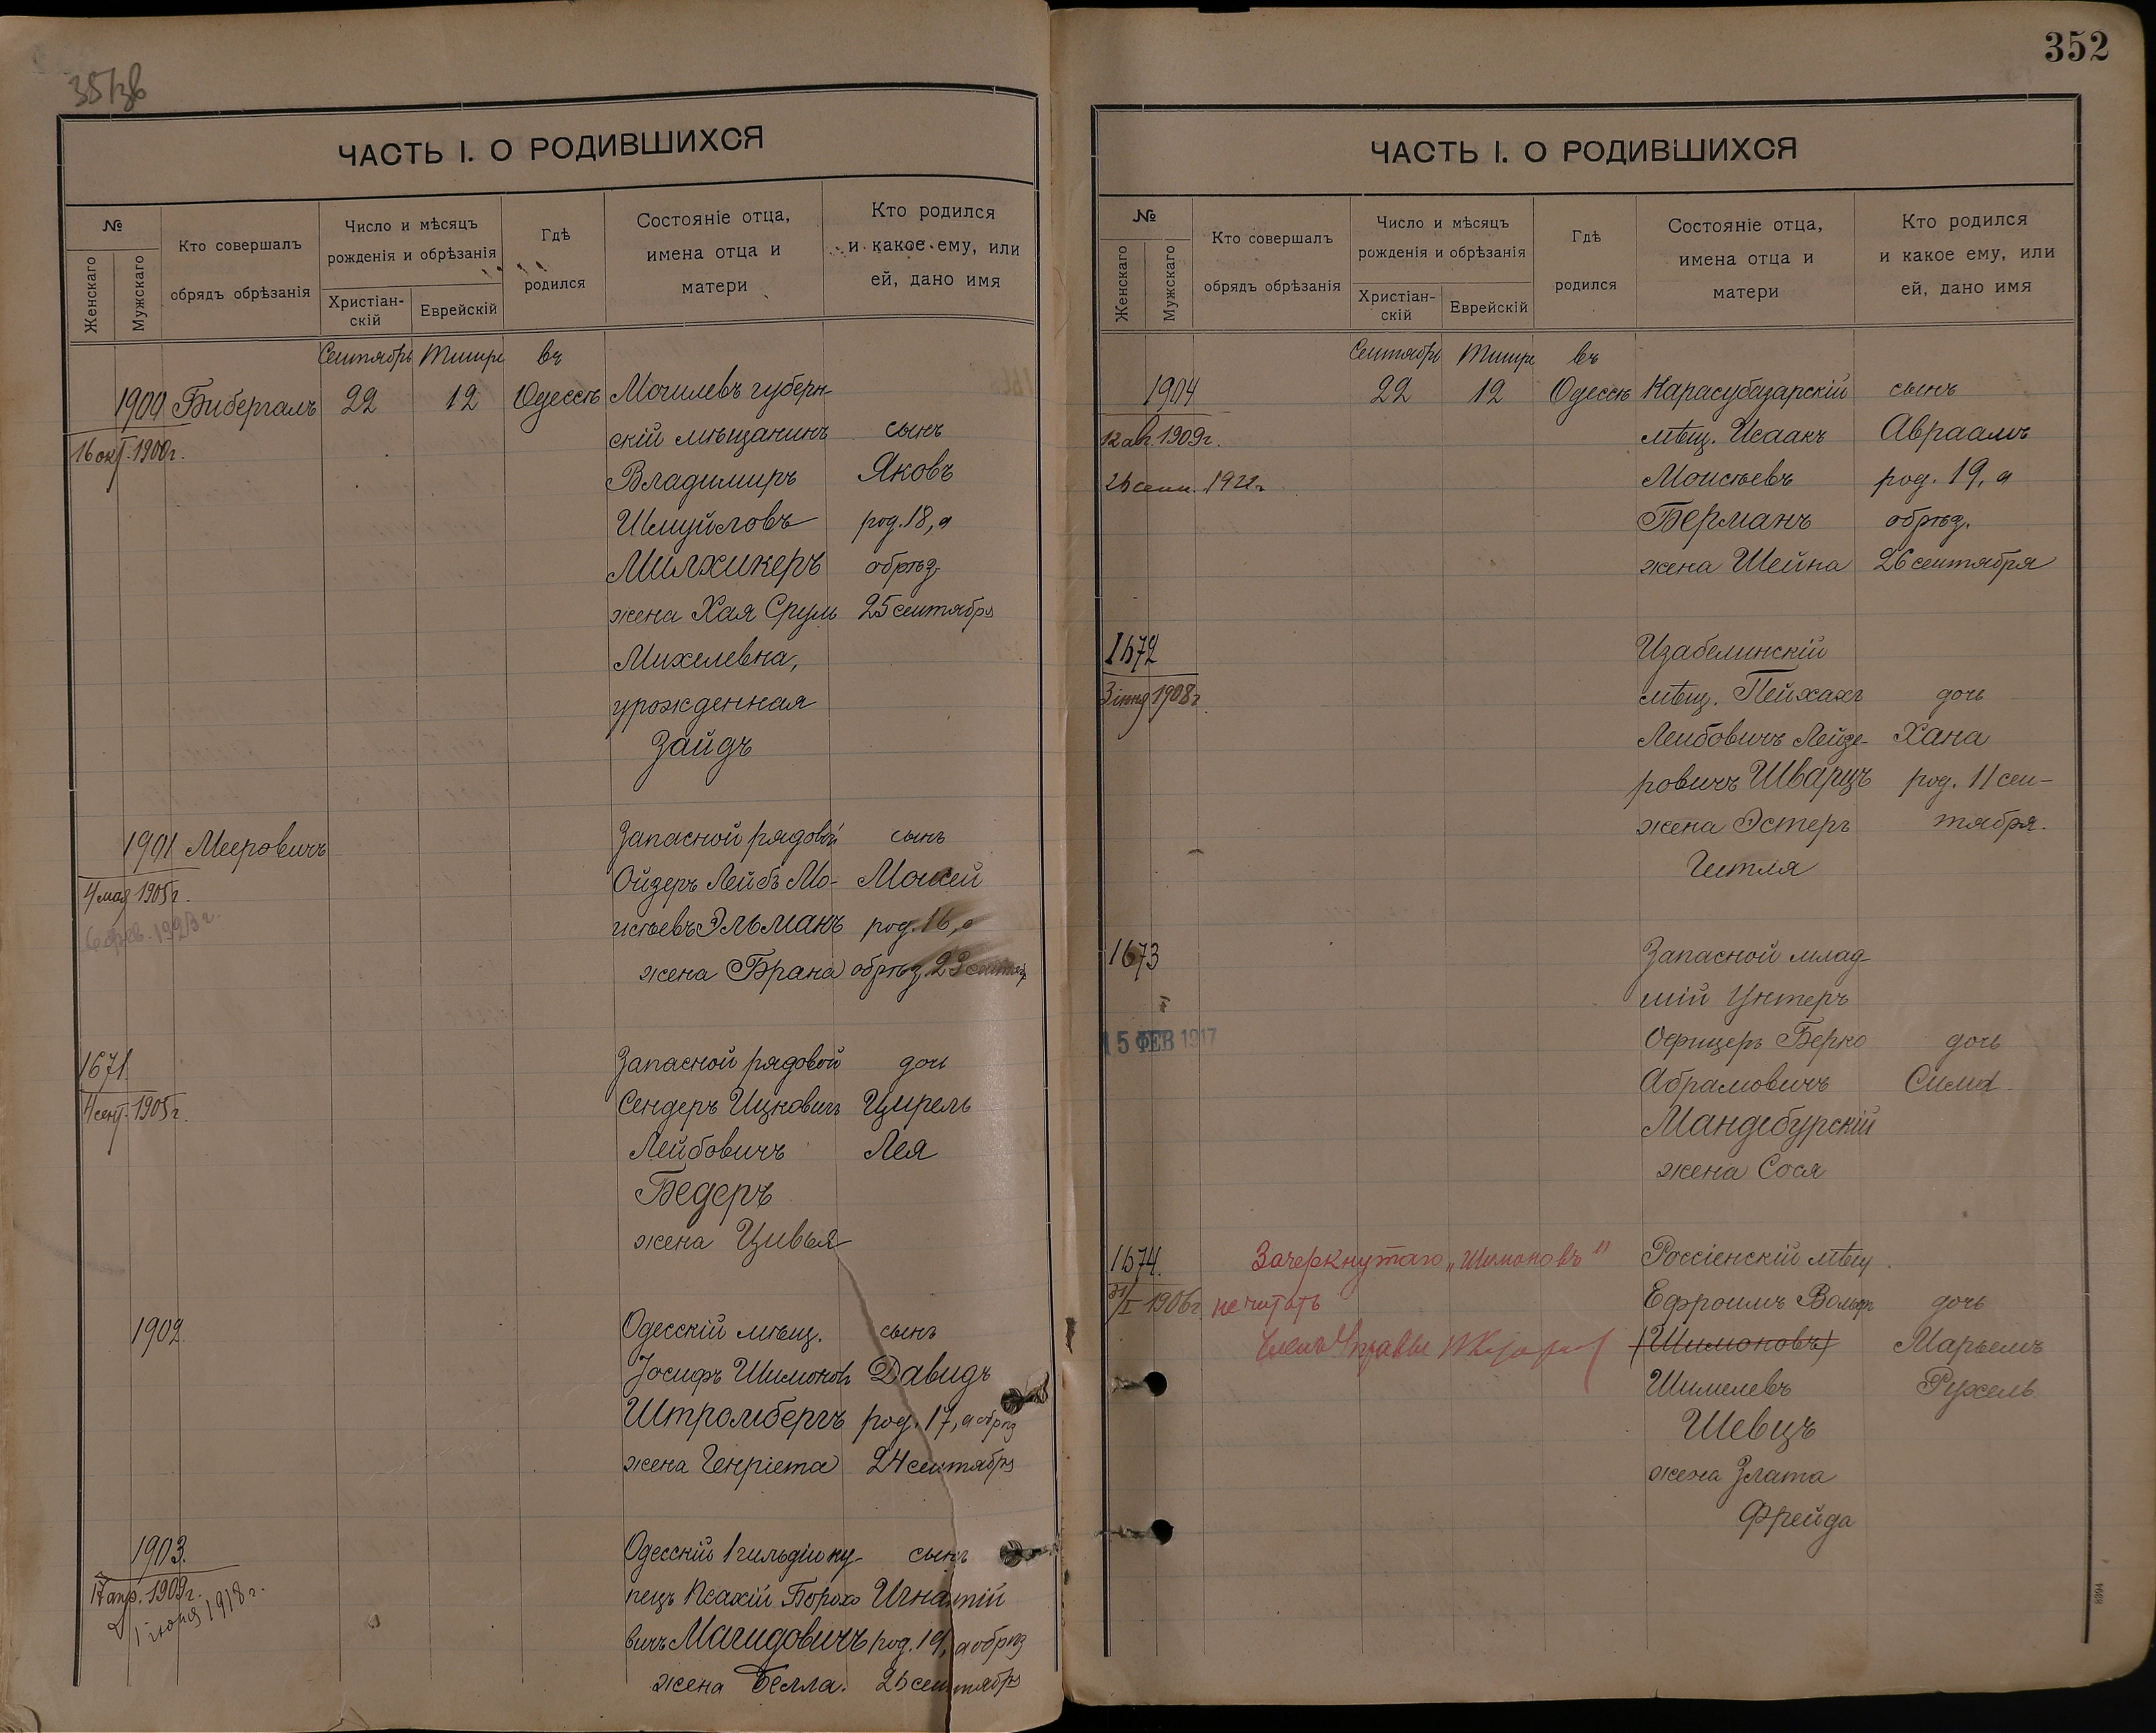 352
ЧАСТЬ I. О РОДИВШИХСЯ
№
Женскаго
Мужскаго
Кто совершалъ
обрядъ обрѣзанія
Число и мѣсяцъ
рожденія и обрѣзанія
Христіан-
скій
Еврейскій
Гдѣ
родился
Состояніе отца,
имена отца и
матери
Кто родился
и какое ему, или
ей, дано имя
Сентябрь Тишри въ
1900 Бибергалъ 22 12 Одессѣ Могилевъ губерн-
16 окт. 1900г. скій мѣщанинъ сынъ
Владимиръ Яковъ
Шмуйловъ род. 18, а
Милхикеръ обрѣз.
жена Хая Сруль 25 сентября
Михелевна,
урожденная
Зайдъ
1901 Мееровичъ Запасной рядовой сынъ
4 мая 1905г. Ойзеръ Лейбъ Мо- Моисей
1923 г. исѣевъ Эльманъ род. 16, а
жена Брана обрѣз. 23
1671 Запасной рядовой дочь
4 сент. 1905г. Сендеръ Ицковичъ Цирель
Лейбовичъ Лея
Бедеръ
жена Цивья
1902 Одесскій мѣщ. сынъ
Іосифъ Шимоновъ Давидъ
Штромбергъ род. 17, а обрѣз
жена Генріета 24 сентября
1903. Одесскій 1 гильдіи ку- сынъ
17 апр. 1909г. пецъ Псахій Борохо Игнатій
1 іюня 1918 г. вичъ Магидовичъ род. 19, а обрѣз
жена Белла. 26 сентября
ЧАСТЬ I. О РОДИВШИХСЯ
№
Женскаго
Мужскаго
Кто совершалъ
обрядъ обрѣзанія
Число и мѣсяцъ
рожденія и обрѣзанія
Христіан-
скій
Еврейскій
Гдѣ
родился
Состояніе отца,
имена отца и
матери
Кто родился
и какое ему, или
ей, дано имя
Сентябрь Тишри въ
1904 22 12 Одессѣ Карасубазарскій сынъ
1909г. мѣщ. Исаакъ Авраамъ
26 сент. Моисѣевъ род. 19, а
Берманъ обрѣз.
жена Шейна 26 сентября
1672 Изабелинскій
1908г мѣщ. Пейхахъ дочь
Лейбовичъ Лейзе- Хана
ровичъ Шварцъ род. 11 сен-
жена Эстеръ тября.
Гитля
1673 Запасной млад
шій Унтеръ
15 ФЕВ 1917 Офицеръ Берко дочь
Абрамовичъ Сима.
Мандебурскій
жена Сося
1674. Зачеркнутаго „Шимоновъ" Россіенскій мѣщ.
1906г. не читать Ефроимъ Вольфъ дочь
Членъ Управы (Шимоновъ) Марьемъ
Шимелевъ Рухель
Шевцъ
жена Злата
Фрейда